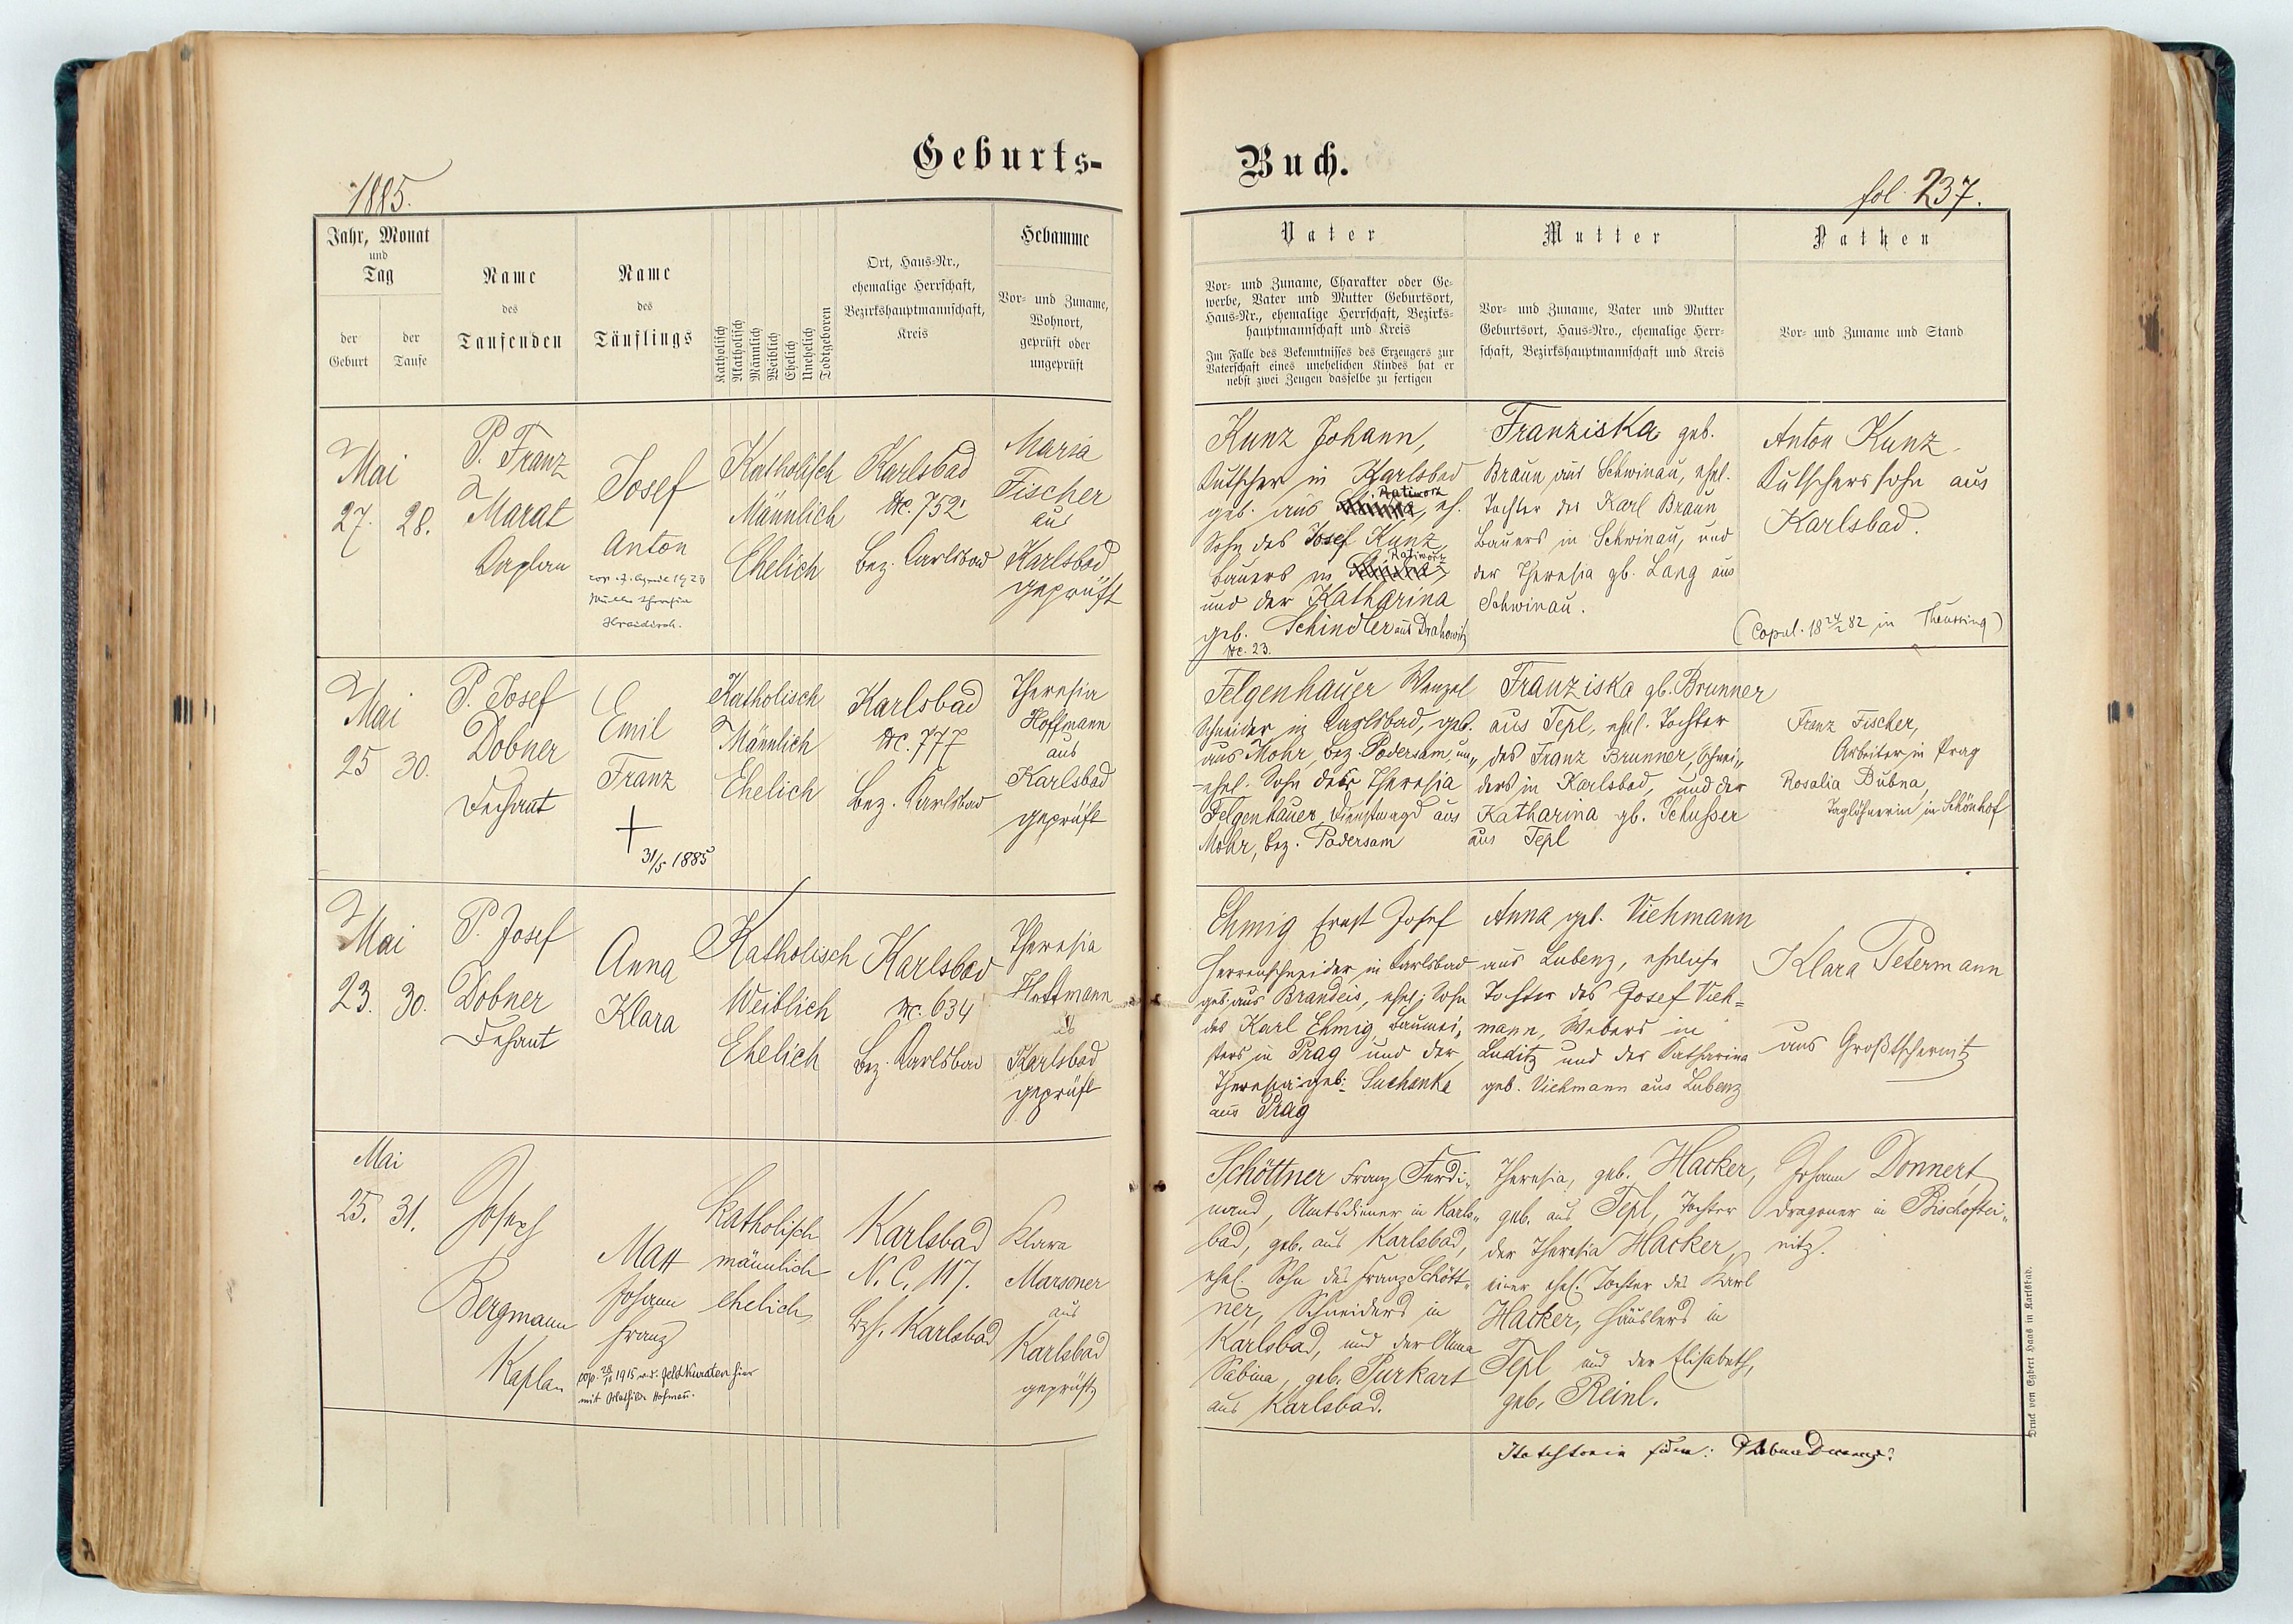 Geburts-
Buch.
1885.
fol. 237.
Jahr, Monat
und
Tag
der
Geburt
der
Taufe
Name
des
Taufenden
Name
des
Täuflings
Katholisch
Akatholisch
Männlich
Weiblich
Ehelich
Unehelich
Todtgeboren
Ort, Haus-Nr.,
ehemalige Herrschaft,
Bezirkshauptmannschaft,
Kreis
Hebamme
Vor- und Zuname,
Wohnort,
geprüft oder
ungeprüft
Vater
Vor- und Zuname, Charakter oder Ge-
werbe, Vater und Mutter Geburtsort,
Haus-Nr., ehemalige Herrschaft, Bezirks-
hauptmannschaft und Kreis
Im Falle des Bekenntnisses des Erzeugers zur
Vaterschaft eines unehelichen Kindes hat er
nebst zwei Zeugen dasselbe zu fertigen
Mutter
Vor- und Zuname, Vater und Mutter
Geburtsort, Haus-Nro., ehemalige Herr-
schaft, Bezirkshauptmannschaft und Kreis
Pathen
Vor- und Zuname und Stand
Mai
27. 28.
P. Franz
Marat
Kaplan
Josef
Anton
Katholisch
Männlich
Ehelich
Karlsbad
Nc. 752
Bez. Karlsbad
Maria
Fischer
aus
Karlsbad
geprüft
Kunz Johann,
Kutscher in Karlsbad
geb. aus Ratiworz, eh.
Sohn des Josef Kunz,
Bauers in Ratiworz
und der Katharina
geb. Schindler aus Drahowitz
Nc. 23.
Franziska geb.
Braun aus Schwinau, ehel.
Tochter des Karl Braun
Bauers in Schwinau, und
der Theresia gb. Lang aus
Schwinau.
Anton Kunz
Kutscherssohn aus
Karlsbad.
(Copul. 18 24/2 82 in Theussing)
Mai
25 30.
P. Josef
Dobner
Dechant
Emil
Franz
31/5 1885
Katholisch
Männlich
Ehelich
Karlsbad
Nc. 777
Bez. Karlsbad
Theresia
Hoffmann
aus
Karlsbad
geprüft
Felgenhauer Wenzel
Schneider in Karlsbad, geb.
aus Mohr, Bez. Podersam, un„
-ehel. Sohn der Theresia
Felgenhauer, Dienstmagd aus
Mohr, Bez. Podersam
Franziska gb. Brunner
aus Tepl, ehel. Tochter
des Franz Brunner, Schnei„
ders in Karlsbad, und der
Katharina gb. Schusser
aus Tepl
Franz Fischer,
Arbeiter in Prag
Rosalia Dubna,
Taglöhnerin in Schönhof
Mai
23. 30.
P. Josef
Dobner
Dechant
Anna
Klara
Katholisch
Weiblich
Ehelich
Karlsbad
Nc. 634
Bez. Karlsbad
Theresia
Hoffmann
aus
Karlsbad
geprüft
Ehmig Ernst Josef
Herrenschneider in Karlsbad
geb. aus Brandeis, ehel. Sohn
des Karl Ehmig Baumei„
sters in Prag und der
Theresia geb. Suchanka
aus Prag
Anna geb. Viehmann
aus Lubenz, eheliche
Tochter des Josef Vieh=
mann, Webers in
Luditz und der Katharina
geb. Viehmann aus Lubenz
Klara Petermann
aus Großtschernitz
Mai
25. 31.
Joseph
Bergmann
Kaplan
Matt
Johann
Franz
cop. 28/10 1915 v. d. Feldkuraten hier
mit Mathilde Hofmann.
Katholisch
männlich
ehelich
Karlsbad
N. C. 117.
Bzh. Karlsbad
Klara
Marsoner
aus
Karlsbad
geprüft
Schöttner Franz Ferdi„
nand, Amtsdiener in Karls„
bad, geb. aus Karlsbad,
ehel. Sohn des Franz Schött„
ner, Schneiders in
Karlsbad, und der Anna
Sabina, geb. Purkart
aus Karlsbad.
Theresia, geb. Hacker,
geb. aus Tepl, Tochter
der Theresia Hacker,
einer ehel. Tochter des Karl
Hacker, Häuslers in
Tepl und der Elisabeth,
geb. Reinl.
Johann Donnert
Dragoner in Bischoftei„
nitz.
Druck von Egbert Haas in Karlsbad.